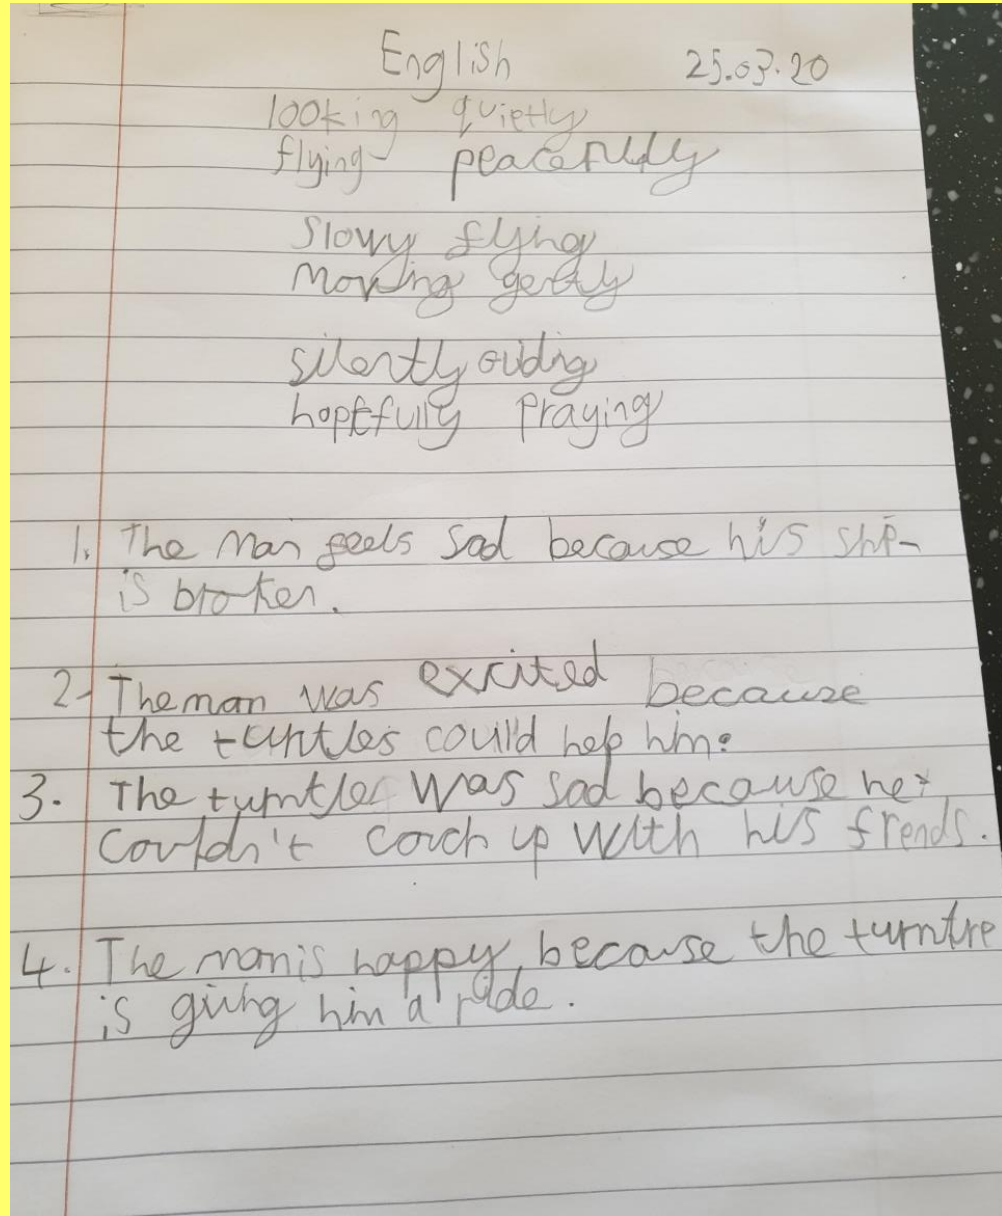 English 25.03.20
looking quietly
flying peacefully
Slowy flying
Moving gently
silently guiding
hopefully Praying
1. The man feels sad because his ship
is broken.
2. The man was excited because
the turntles could help him.
3. The turntles was sad because he
Couldn't coach up with his frends.
4. The man is happy because the turntre
is giving him a ride.